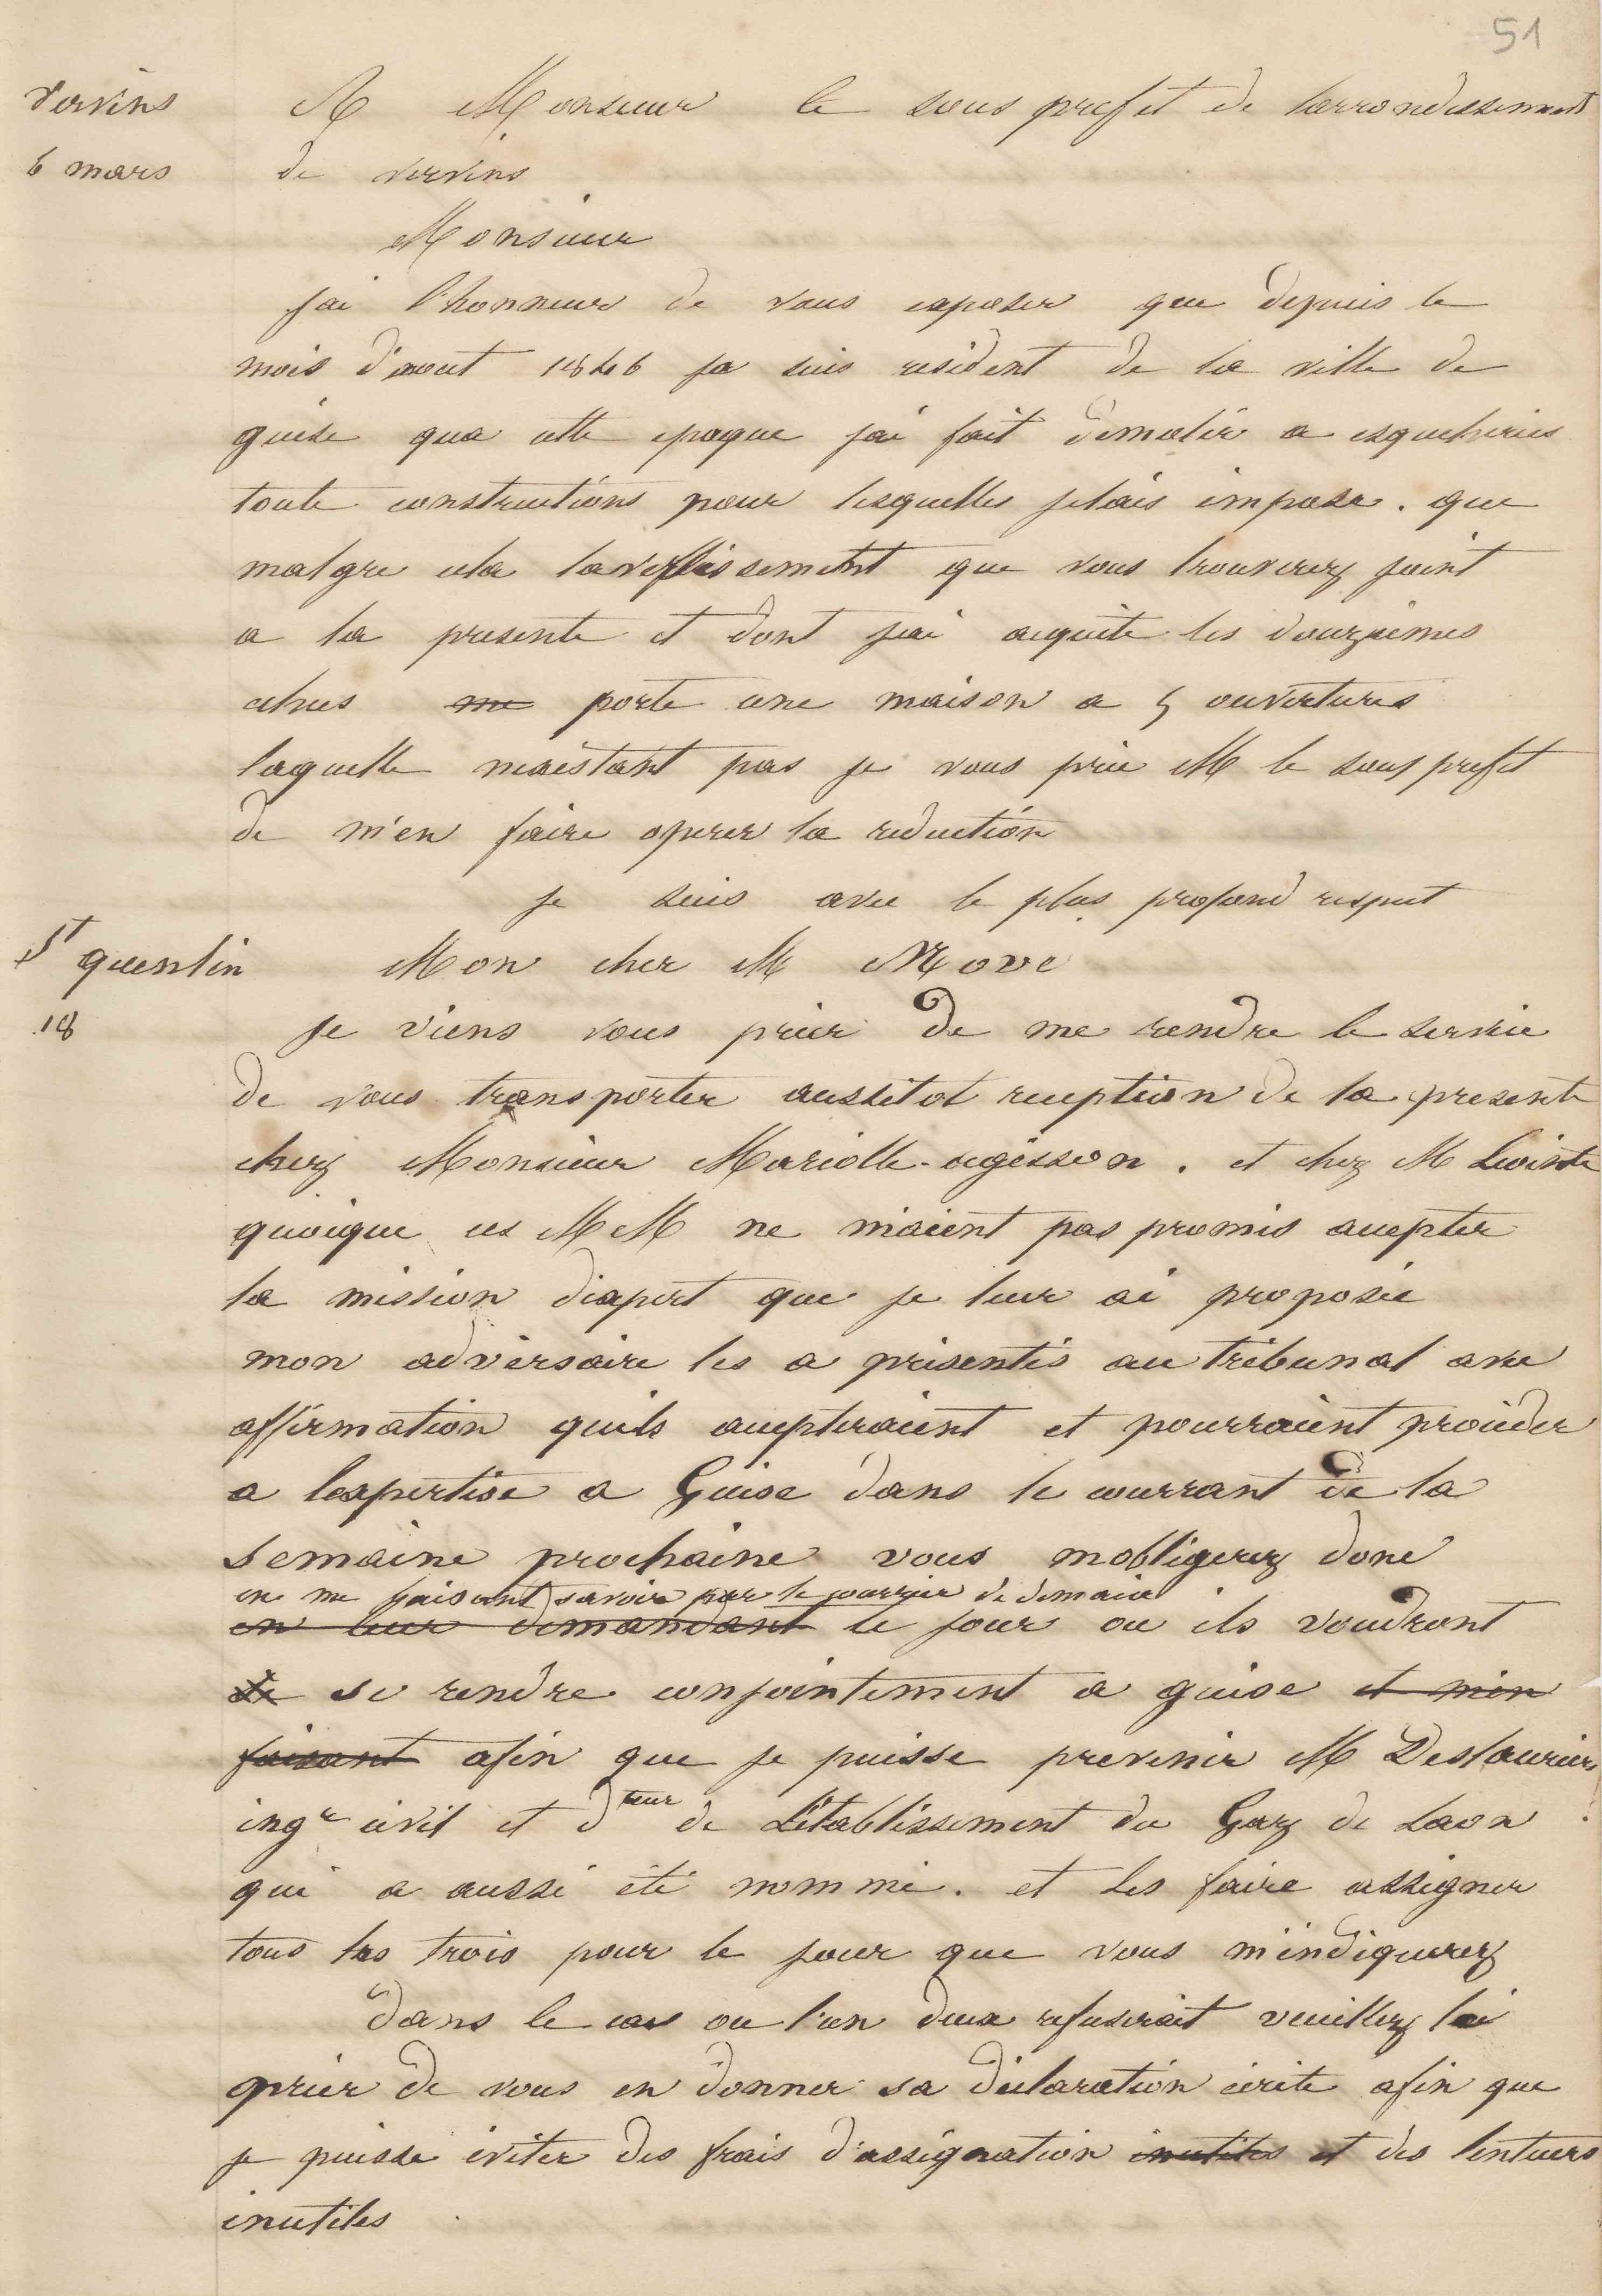 51
Vervins
6 mars
A Monsieur le sous prefet de larrondissement
de vervins
Monsieur
jai l'honneur de vous exposer que depuis le
mois d'aout 1846 je suis resident de la ville de
guise qua cette epoque jai fait demolir a esqueheries
toute constructions pour lesquelles jetais impose. que
malgre cela lavertissement que vous trouverez joint
a la presente et dont jai acquite les douziemes
echus me porte une maison a 5 ouvertures
laquelle nexistant pas je vous prie M le sous prefet
de m'en faire operer la reduction
je suis avec le plus profond respect
St quentin
18
Mon cher M More
Je viens vous prier de me rendre le service
de vous transporter aussitot reception de la presente
chez Monsieur Mariolle-agisson. et chez M Lecointe
quoique ces MM ne m'aient pas promis accepter
la mission d'expert que je leur ai proposée
mon adversaire les a présentés au tribunal avec
affirmation quils accepteraient et pourraient procéder
a lexpertise a Guise dans le courrant de la
semaine prochaine vous mobligerez donc
en me faisant savoir par le courrier de demain
en leur demandant le jour ou ils voudront
de se rendre conjointement a guise et m'en
faisant afin que je puisse prevenir M Deslaurier
ingr civil et dteur de L'établissement du Gaz de Laon
qui a aussi été nommé. et les faire assigner
tous les trois pour le jour que vous m'indiquerez
dans le cas ou l'un deux refuserait veuillez le
prier de vous en donner sa déclaration écrite afin que
je puisse éviter des frais d'assignation inutiles et des lenteurs
inutiles